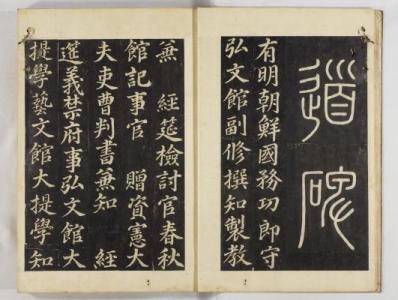 道碑
有明朝鮮國務功郎守
弘文館副修撰知製教
兼 經筵檢討官春秋
館記事官 贈資憲大
夫吏曹判書兼知 經
筵義禁府事弘文館大
提學藝文館大提學知